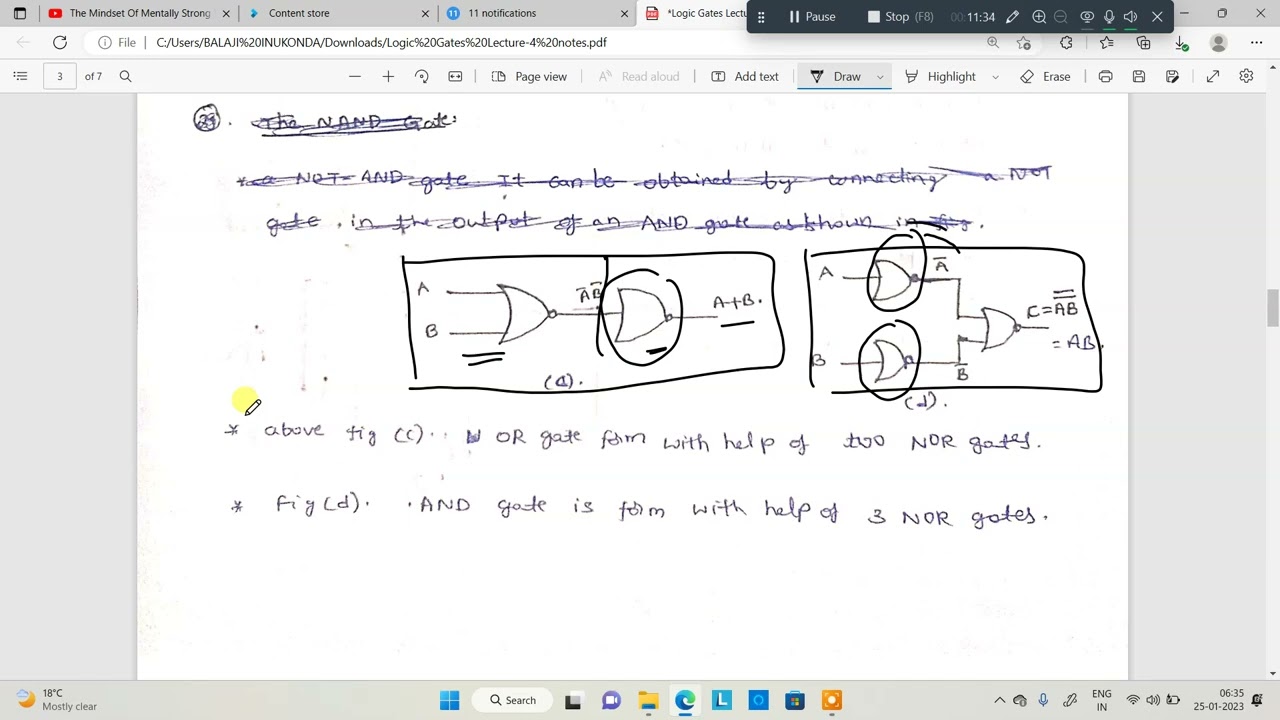 The Mindset Of Mentally Strong
Content store
11 notifications
*Logic Gates Lectu
Pause
Stop (F8)
00:11:34
File
C:/Users/BALAJI%20INUKONDA/Downloads/Logic%20Gates%20Lecture-4%20notes.pdf
3 of 7
Page view
Read aloud
Add text
Draw
Highlight
Erase
29. The NAND Gate:
* a NOT-AND gate It can be obtained by connecting a NOT
gate. in the output of an AND gate as shown in fig.
A
B
A̅B̅
A+B.
(c).
A
A̅
B
B̅
C=A̅B̅
=AB.
(d).
* above fig (c). OR gate form with help of two NOR gates.
* Fig(d). AND gate is form with help of 3 NOR gates.
18°C
Mostly clear
Search
ENG
IN
06:35
25-01-2023